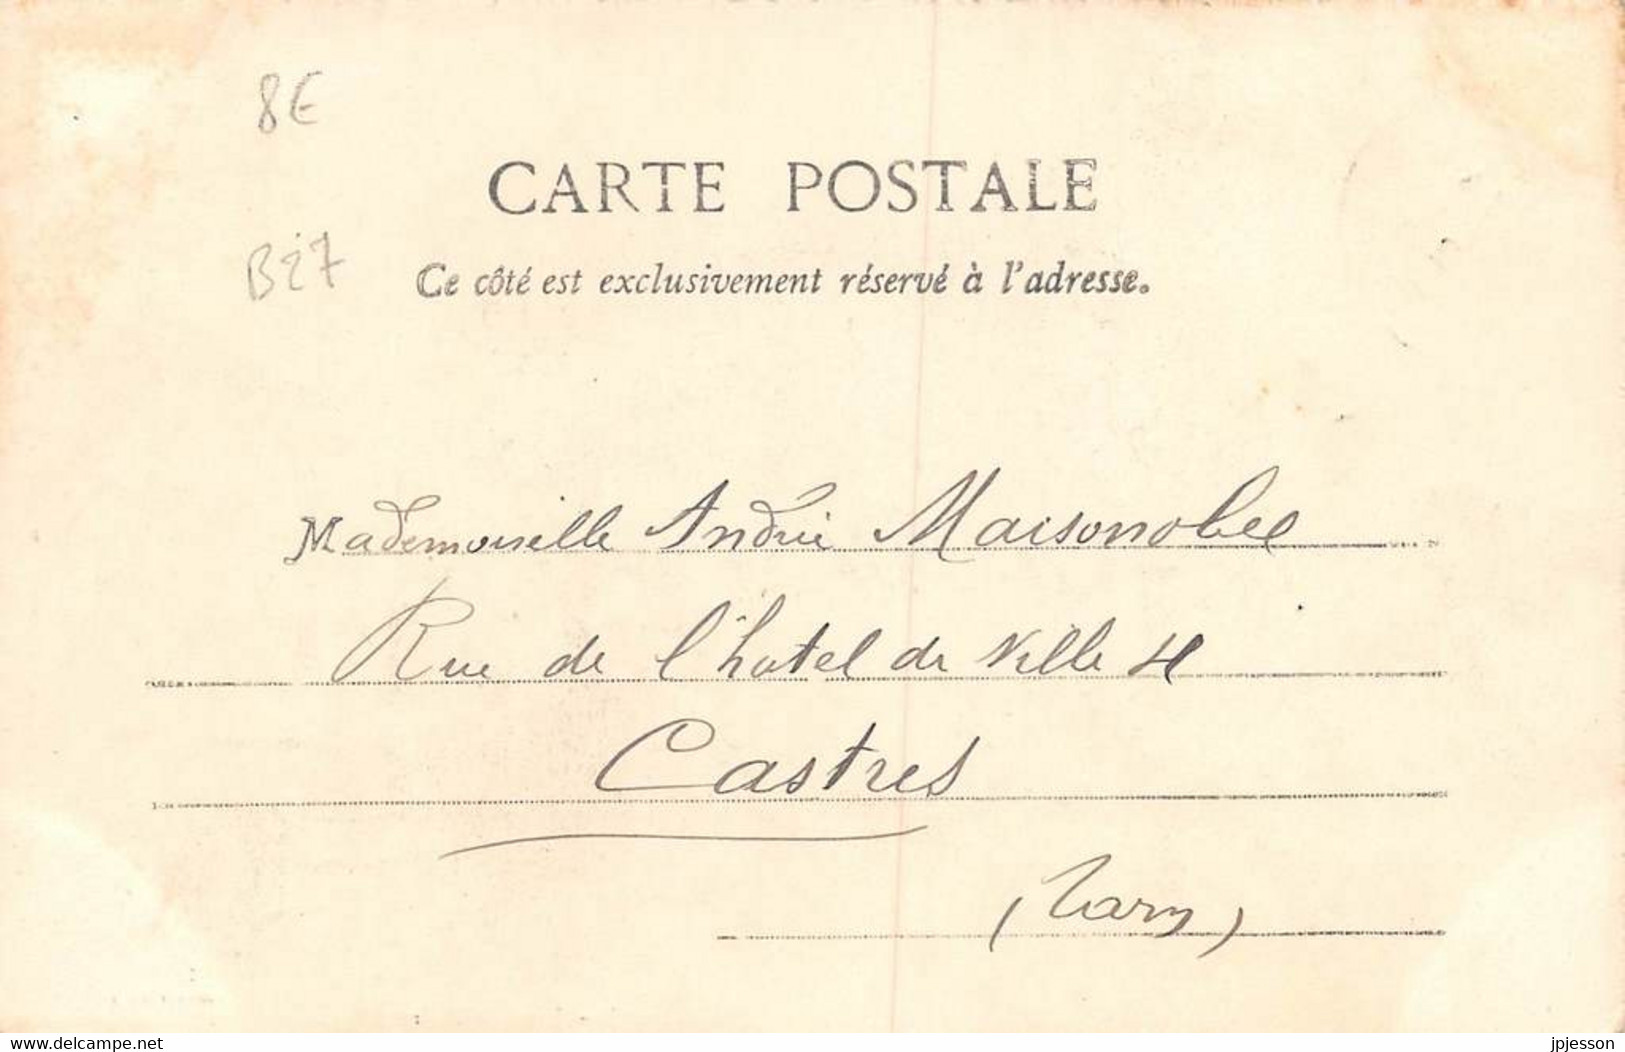 8€
CARTE POSTALE
B27
Ce côté est exclusivement réservé à l'adresse.
Mademoiselle Andrée Maisonobee
Rue de l'hotel de Ville
Castres
(Tarn)
www.delcampe.net
jpjesson